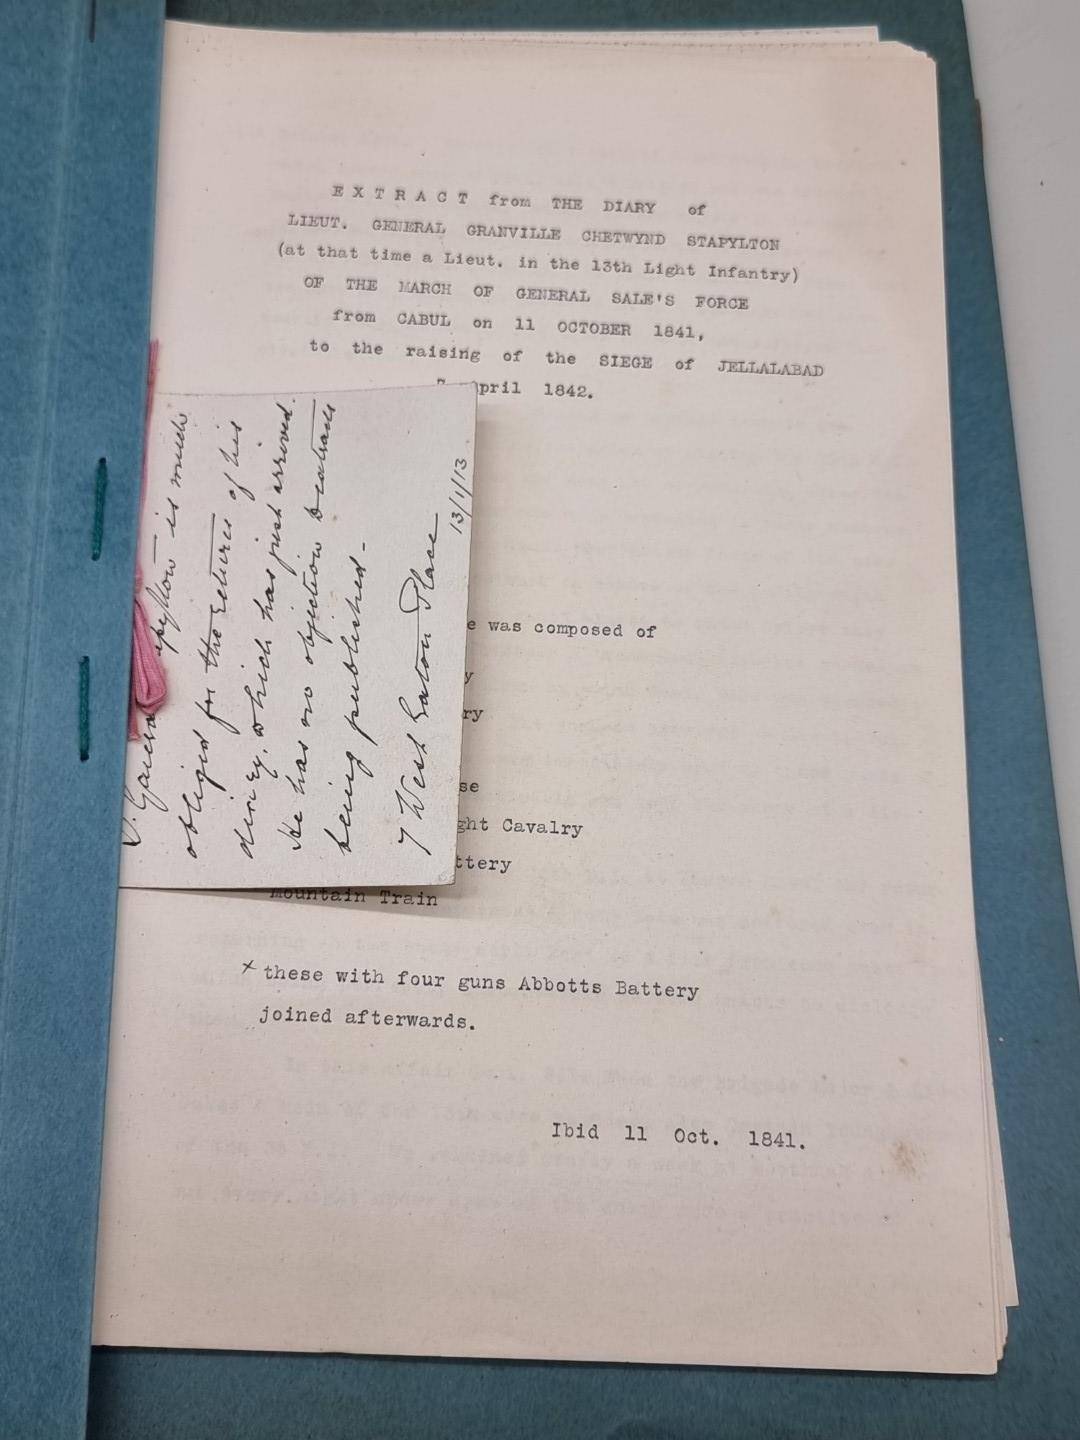 E X T R A C T from THE DIARY of
LIEUT. GENERAL GRANVILLE CHETWYND STAPYLTON
(at that time a Lieut. in the 13th Light Infantry)
OF THE MARCH OF GENERAL SALE'S FORCE
from CABUL on 11 OCTOBER 1841,
to the raising of the SIEGE of JELLALABAD
April 1842.
is much
obliged for the return of his
diary, which has just arrived.
He has no objection
being published -
7 West Eaton Place
13/1/13
e was composed of
y
ry
se
ght Cavalry
ttery
Mountain Train
x these with four guns Abbotts Battery
joined afterwards.
Ibid 11 Oct. 1841.